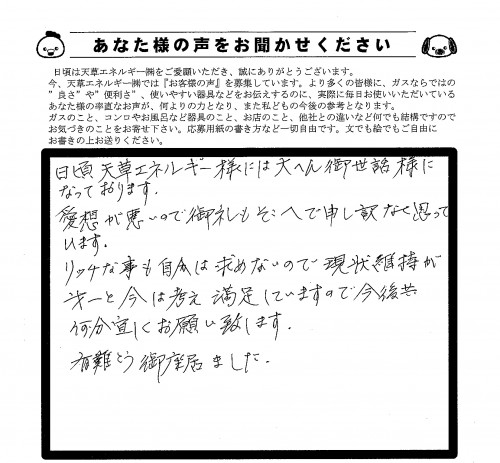 あなた様の声をお聞かせください
日頃は天草エネルギー㈱をご愛顧いただき、誠にありがとうございます。
今、天草エネルギー㈱では『お客様の声』を募集しています。より多くの皆様に、ガスならではの
”良さ”や”便利さ”、使いやすい器具などをお伝えするのに、実際に毎日お使いいただいている
あなた様の率直なお声が、何よりの力となり、また私どもの今後の参考となります。
ガスのこと、コンロやお風呂など器具のこと、お店のこと、他社との違いなど何でも結構ですので
お気づきのことをお寄せ下さい。応募用紙の書き方など一切自由です。文でも絵でもご自由に
お書きの上お送りください。
日頃天草エネルギー様には大へん御世話様に
なっております.
愛想が悪いので御礼もそこへで申し訳なく思って
います.
リッチな事も自分は求めないので現状維持が
才一と今は考え満足していますので今後共
何分宜しくお願い致します.
有難とう御座居ました.